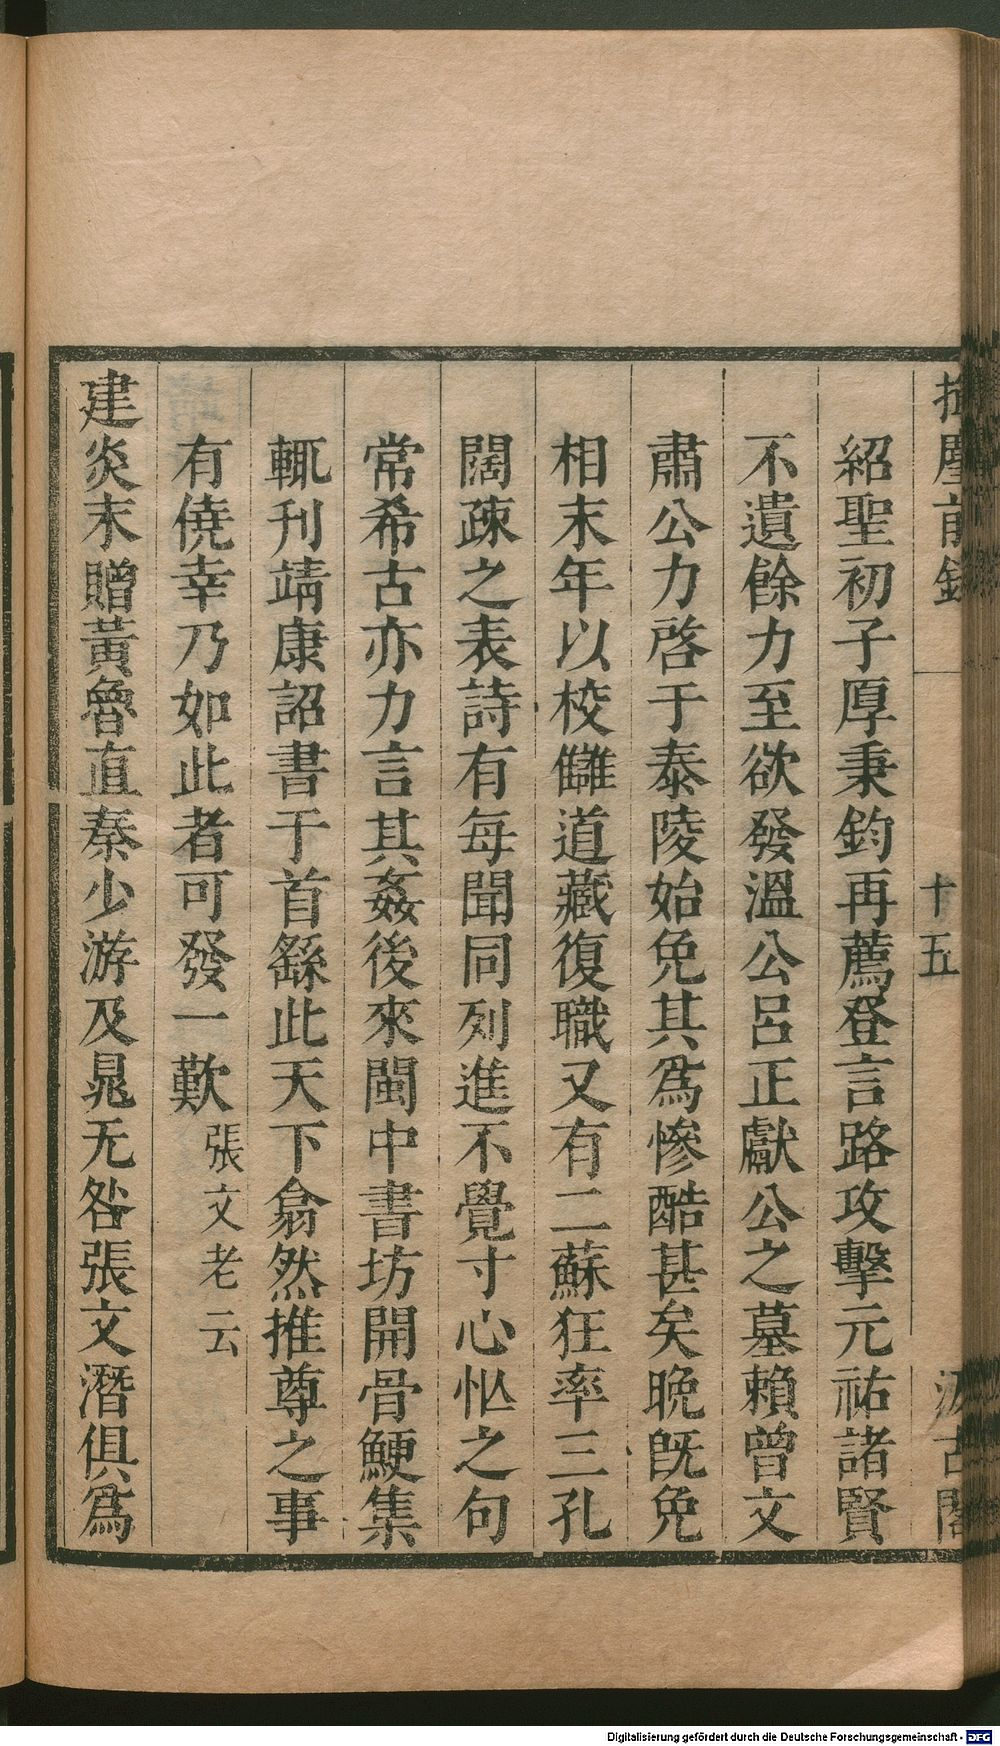 揮麈前錄 十五 汲古閣
紹聖初子厚秉鈞再薦登言路攻擊元祐諸賢
不遺餘力至欲發溫公呂正獻公之墓賴曾文
肅公力啓于泰陵始免其爲慘酷甚矣晚旣免
相末年以校讎道藏復職又有二蘇狂率三孔
闊疎之表詩有每聞同列進不覺寸心忙之句
常希古亦力言其姦後來閩中書坊開骨鯁集
輒刊靖康詔書于首繇此天下翕然推尊之事
有僥幸乃如此者可發一歎張文老云
建炎末贈黃魯直秦少游及晁无咎張文潛俱爲
Digitalisierung gefördert durch die Deutsche Forschungsgemeinschaft - DFG